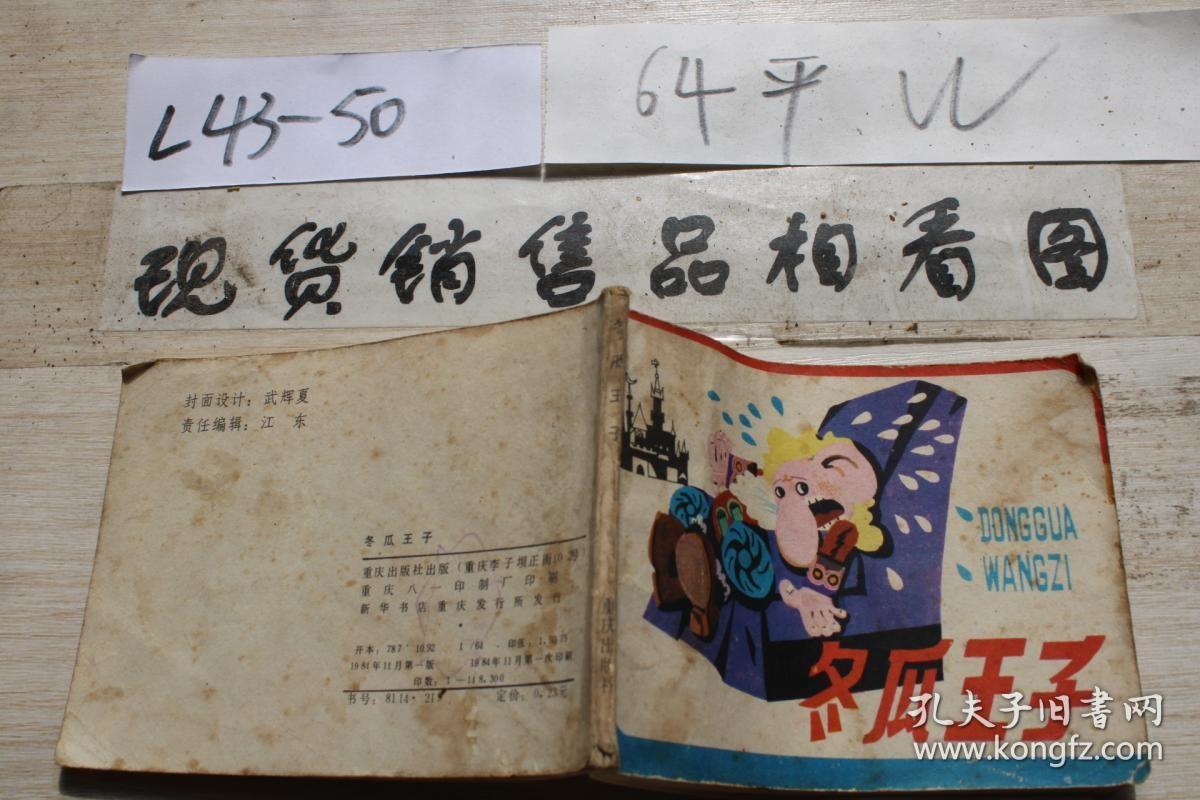 L43-50
64平
现货销售品相看图
封面设计：武辉夏
责任编辑：江 东
冬瓜王子
重庆出版社出版（重庆李子坝正街102号）
重庆八一印制厂印刷
新华书店重庆发行所发行
开本：787×1092 1/64 印张：
1984年11月第一版 1984年11月第一次印刷
印数：1—148,300
书号：8114·21 定价：0.23元
冬瓜王子
重庆出版社
DONGGUA
WANGZI
冬瓜王子
孔夫子旧书网
www.kongfz.com